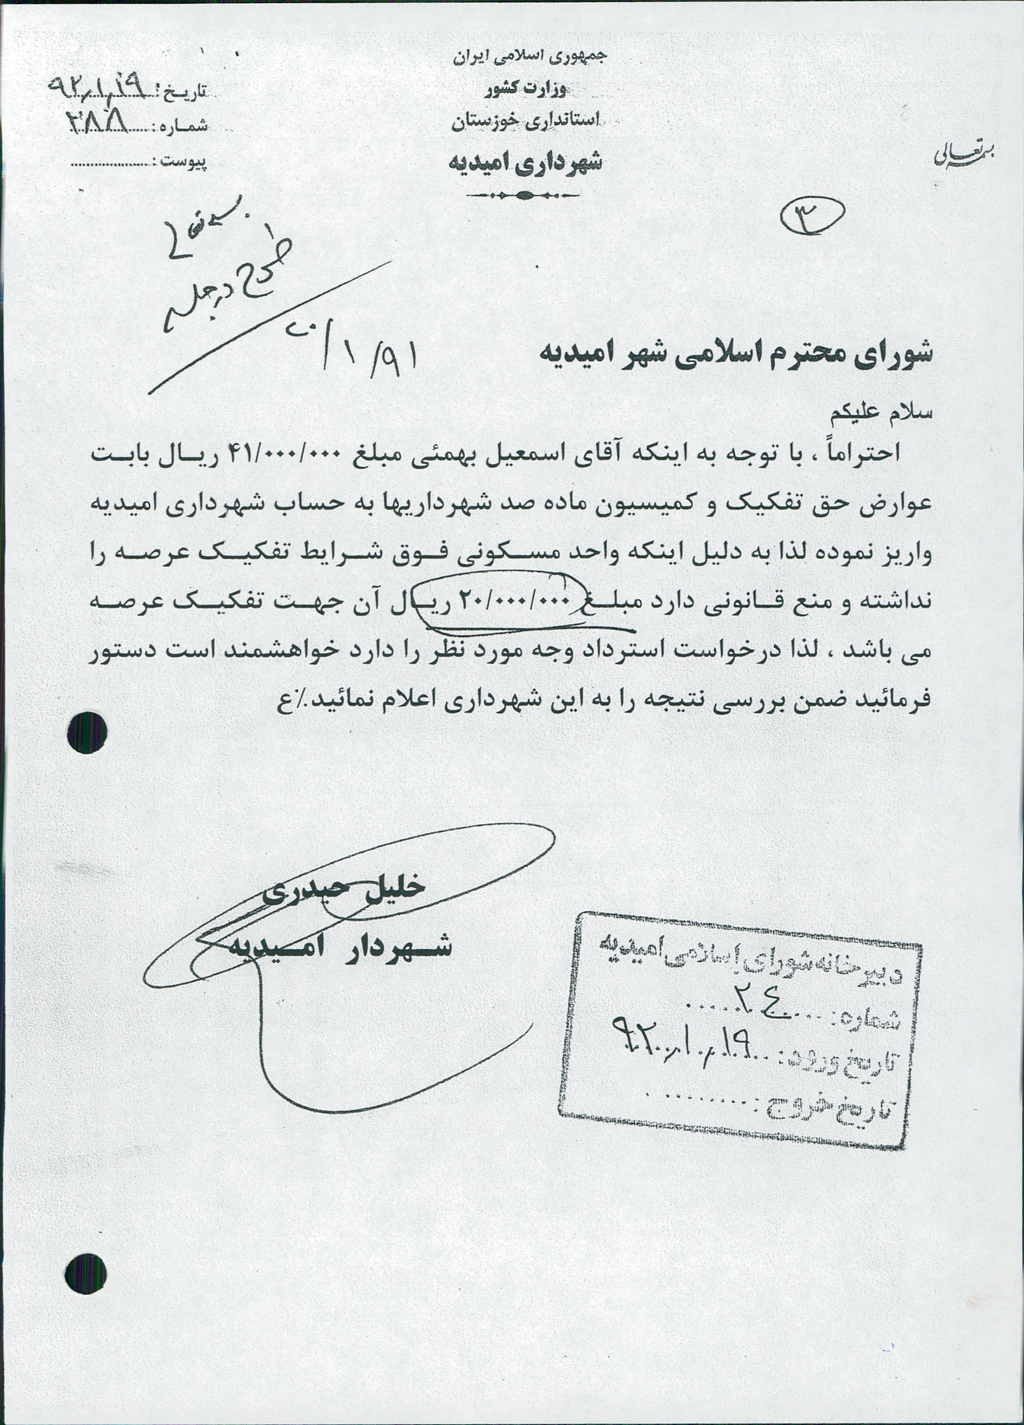 بسمه تعالی
جمهوری اسلامی ایران
وزارت کشور
استانداری خوزستان
شهرداری امیدیه
تاریخ: ۹۲/۱/۱۹
شماره: ۲۸۸
پیوست:
۳
بسمه تعالی
طرح در جلسه
۲۰/۱/۹۱
شورای محترم اسلامی شهر امیدیه
سلام علیکم
احتراماً ، با توجه به اینکه آقای اسمعیل بهمئی مبلغ ۴۱/۰۰۰/۰۰۰ ریال بابت
عوارض حق تفکیک و کمیسیون ماده صد شهرداریها به حساب شهرداری امیدیه
واریز نموده لذا به دلیل اینکه واحد مسکونی فوق شرایط تفکیک عرصه را
نداشته و منع قانونی دارد مبلغ ۲۰/۰۰۰/۰۰۰ ریال آن جهت تفکیک عرصه
می باشد ، لذا درخواست استرداد وجه مورد نظر را دارد خواهشمند است دستور
فرمائید ضمن بررسی نتیجه را به این شهرداری اعلام نمائید٪ع
خلیل حیدری
شهردار امیدیه
دبیرخانه شورای اسلامی امیدیه
شماره: ۲۴۰
تاریخ ورود: ۹۲/۱/۱۹
تاریخ خروج: